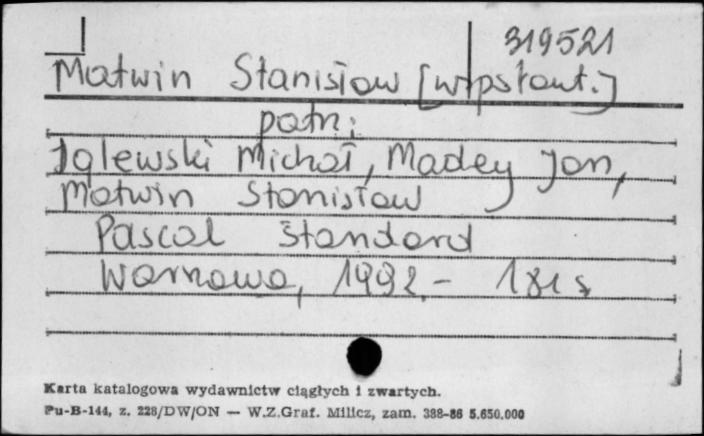 319521
Matwin Stanisław [współaut.]
patrz:
Iglewski Michał, Madey Jan,
Matwin Stanisław
Pascal Standard
Warszawa, 1992. - 181 s
Karta katalogowa wydawnictw ciągłych i zwartych.
Pu-B-144, z. 228/DW/ON — W.Z.Graf. Milicz, zam. 388-86 5.650.000